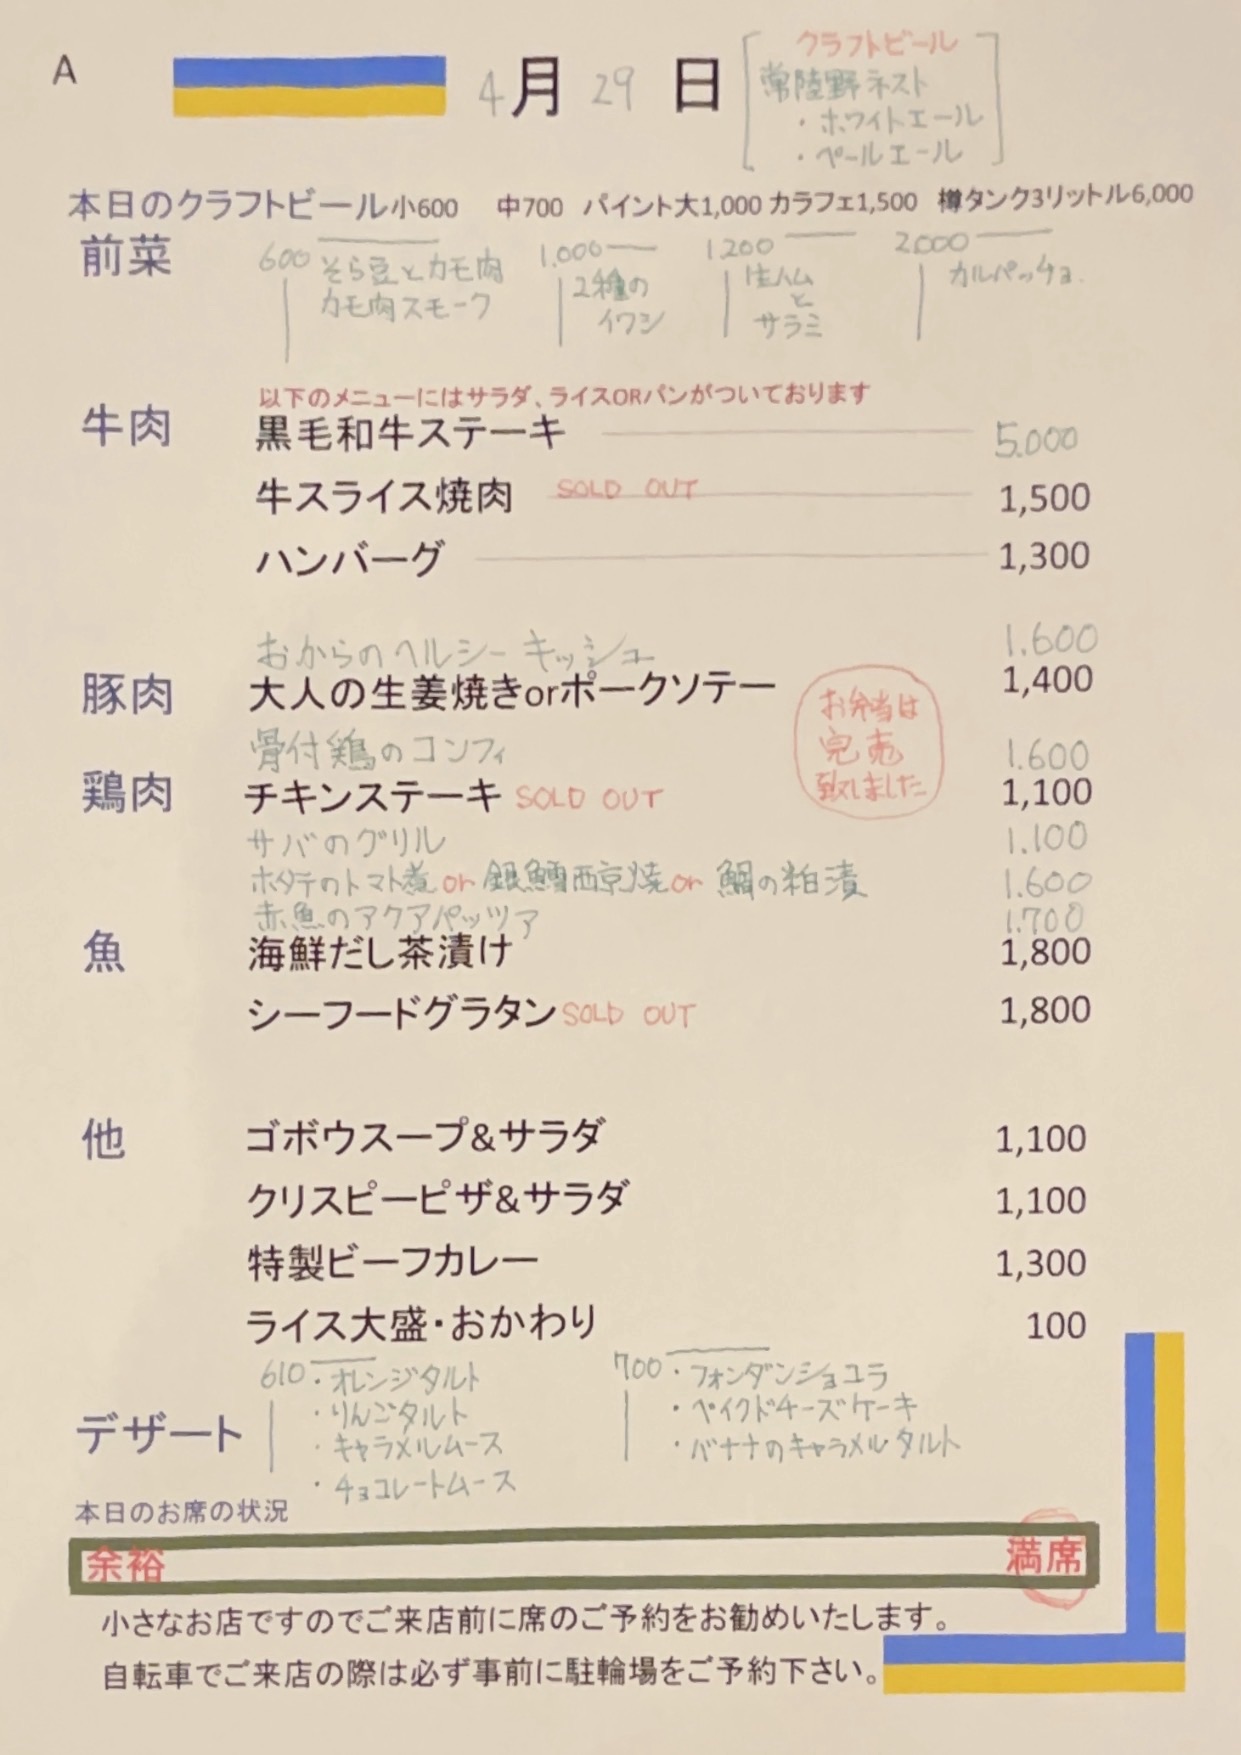 A
4月29日
クラフトビール
常陸野ネスト
・ホワイトエール
・ペールエール
本日のクラフトビール小600 中700 パイント大1,000 カラフェ1,500 樽タンク3リットル6,000
前菜
600 そら豆とカモ肉
カモ肉スモーク
1.000
2種の
イワシ
1.200
生ハム
と
サラミ
2.000
カルパッチョ.
以下のメニューにはサラダ、ライスORパンがついております
牛肉
黒毛和牛ステーキ 5.000
牛スライス焼肉 SOLD OUT 1,500
ハンバーグ 1,300
おからのヘルシーキッシュ 1.600
豚肉 大人の生姜焼きorポークソテー 1,400
お弁当は
完売
致しました
骨付鶏のコンフィ 1.600
鶏肉 チキンステーキ SOLD OUT 1,100
サバのグリル 1.100
ホタテのトマト煮 or 銀鱈西京焼 or 鯛の粕漬 1.600
赤魚のアクアパッツァ 1.700
魚 海鮮だし茶漬け 1,800
シーフードグラタン SOLD OUT 1,800
他 ゴボウスープ&サラダ 1,100
クリスピーピザ&サラダ 1,100
特製ビーフカレー 1,300
ライス大盛・おかわり 100
デザート
610・オレンジタルト
・りんごタルト
・キャラメルムース
・チョコレートムース
700・フォンダンショコラ
・ベイクドチーズケーキ
・バナナのキャラメルタルト
本日のお席の状況
余裕 満席
小さなお店ですのでご来店前に席のご予約をお勧めいたします。
自転車でご来店の際は必ず事前に駐輪場をご予約下さい。